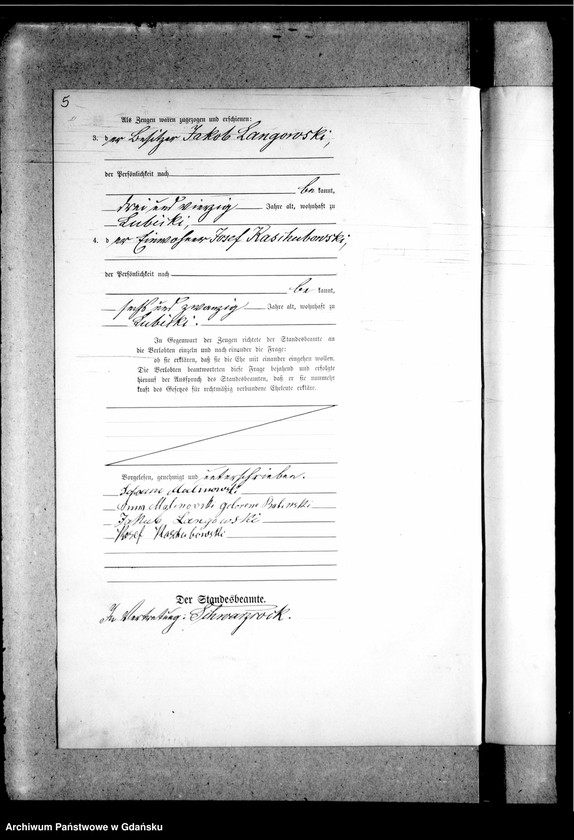 5
Als Zeugen waren zugezogen und erschienen:
3. der Besitzer Jakob Langowski,
der Persönlichkeit nach
be kannt,
drei und vierzig Jahre alt, wohnhaft zu
Lubicki,
4. der Einwohner Josef Kaschubowski,
der Persönlichkeit nach
be kannt,
sechs und zwanzig Jahre alt, wohnhaft zu
Lubicki.
In Gegenwart der Zeugen richtete der Standesbeamte an
die Verlobten einzeln und nach einander die Frage:
ob sie erklären, daß sie die Ehe mit einander eingehen wollen.
Die Verlobten beantworteten diese Frage bejahend und erfolgte
hierauf der Ausspruch des Standesbeamten, daß er sie nunmehr
kraft des Gesetzes für rechtmäßig verbundene Eheleute erkläre.
Vorgelesen, genehmigt und unterschrieben.
Johann Malinowski
Anna Malinowski geborene
Jakub Langowski
Josef Kaschubowski
Der Standesbeamte.
In Vertretung: Schwarzrock.
Archiwum Państwowe w Gdańsku